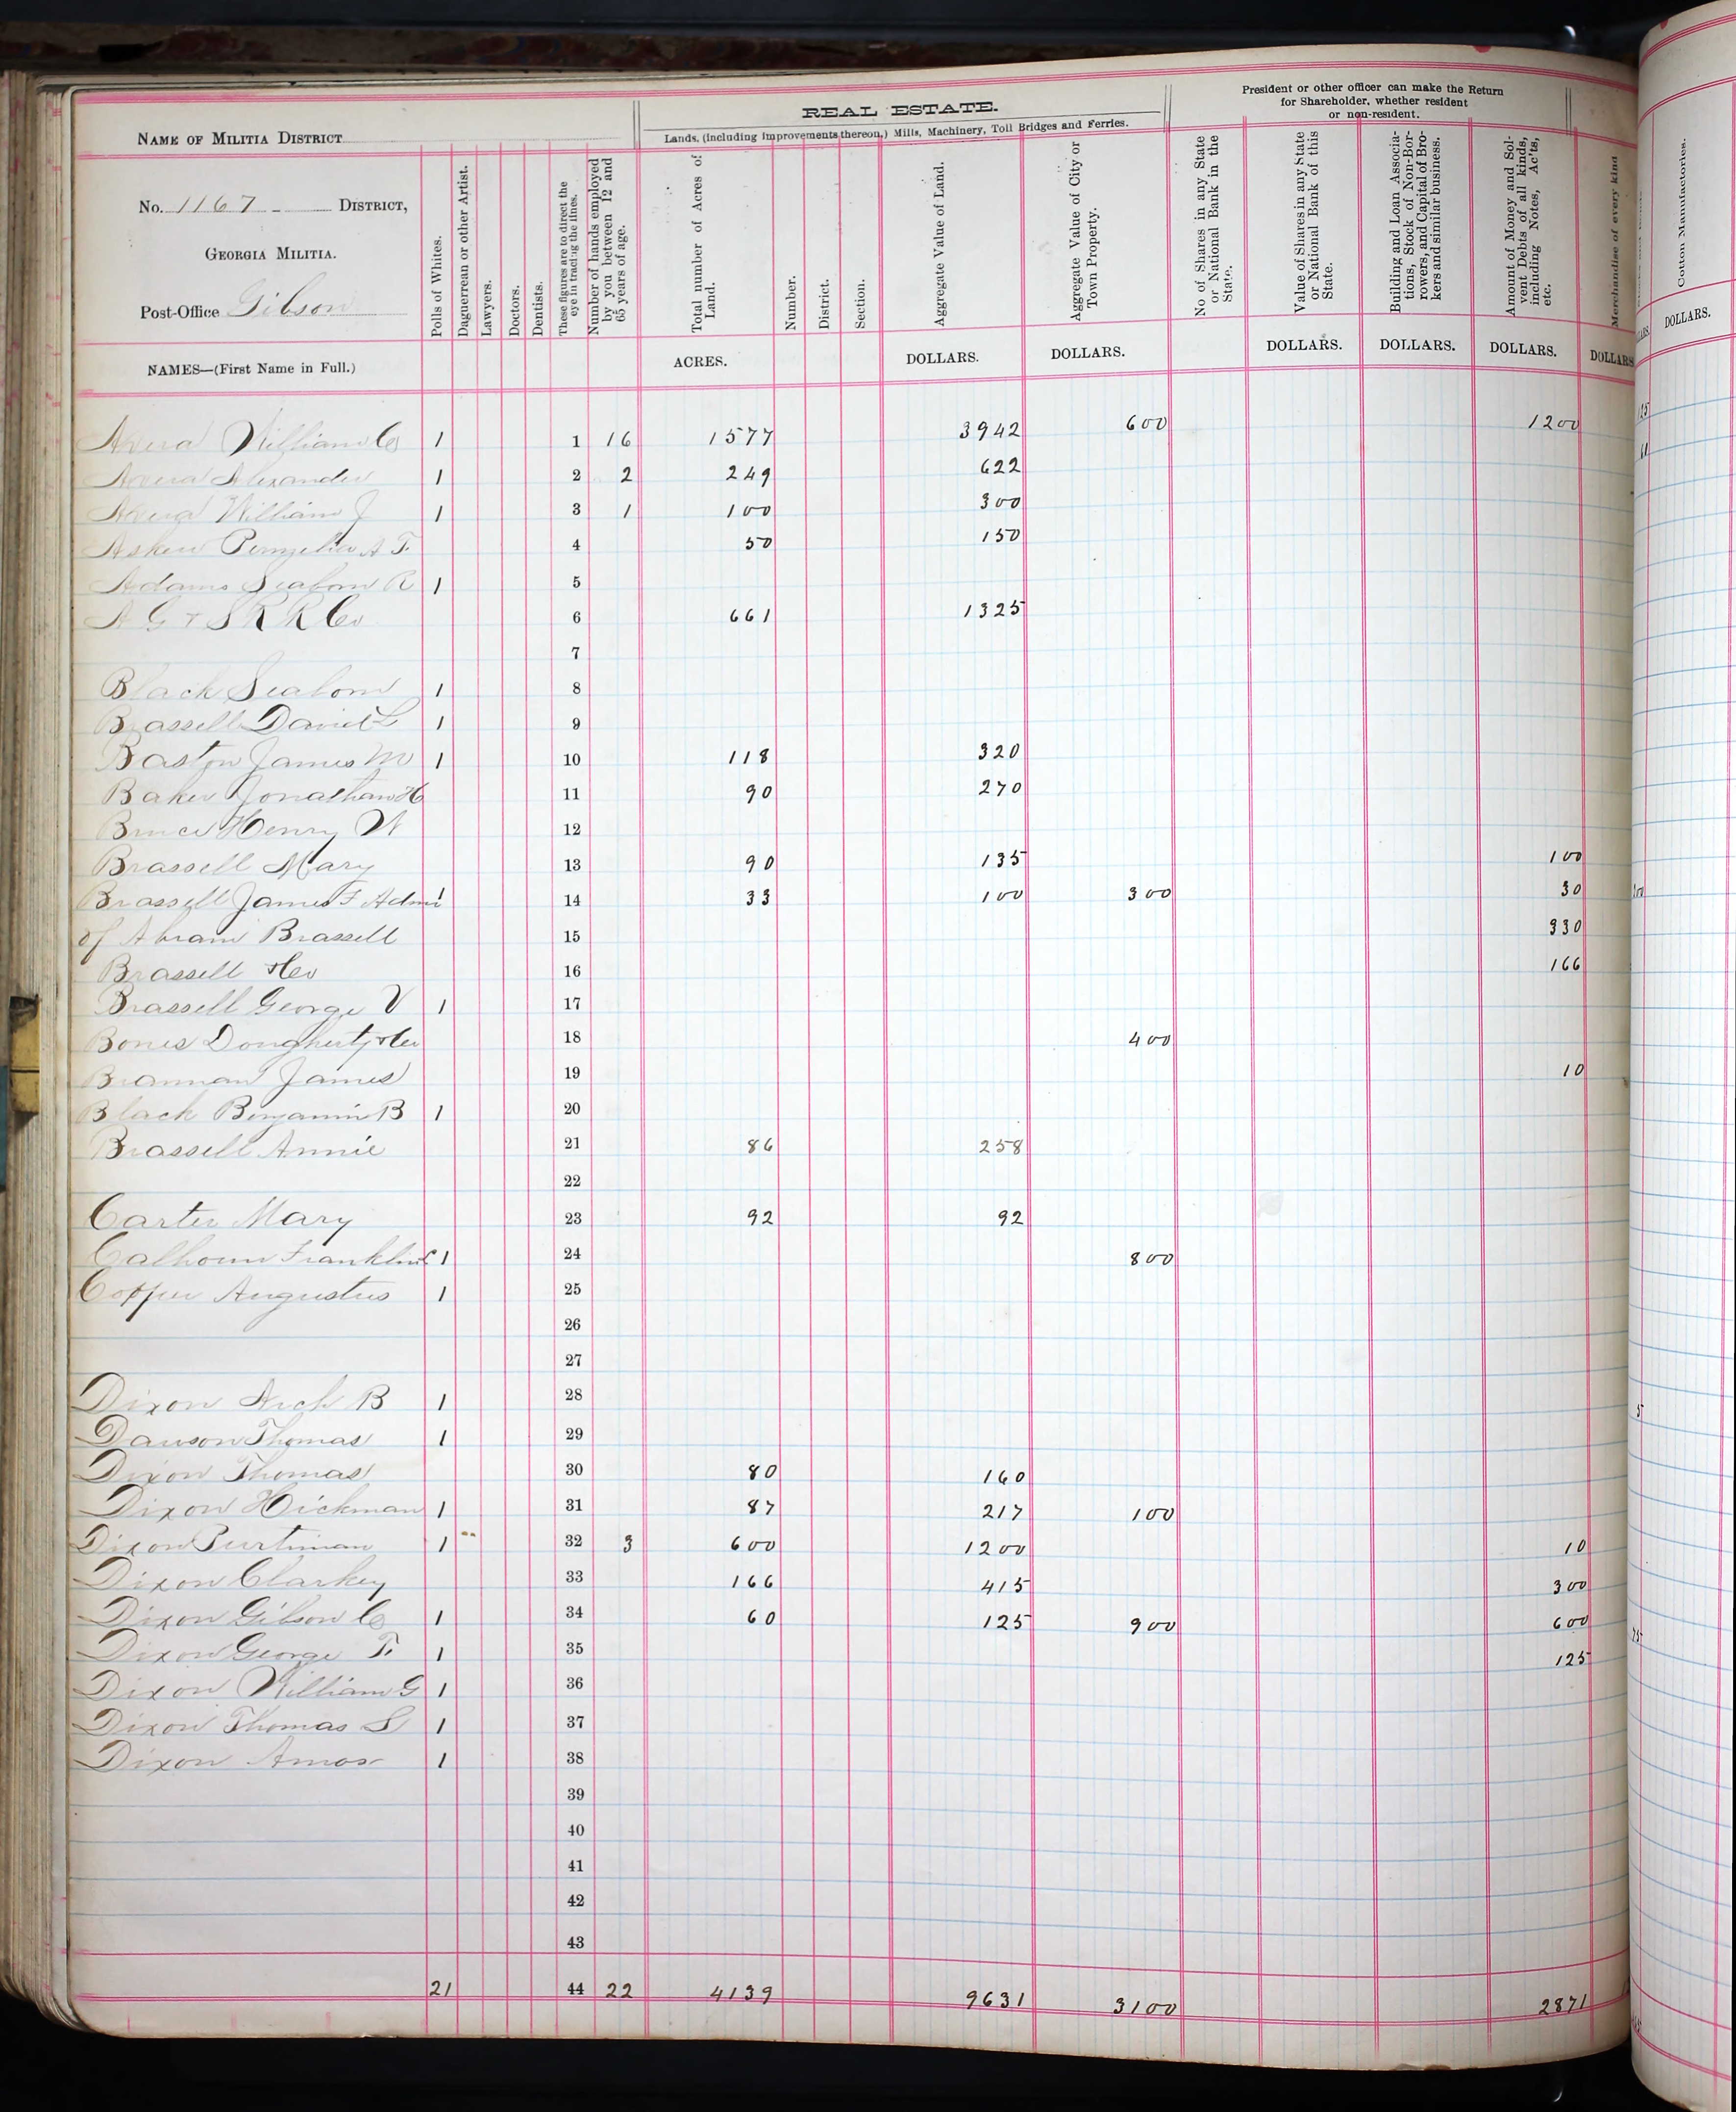 REAL ESTATE.
President or other officer can make the Return for Shareholder, whether resident or non-resident.
Lands, (including improvements thereon,) Mills, Machinery, Toll Bridges and Ferries.
NAME OF MILITIA DISTRICT
No. 1167 DISTRICT,
GEORGIA MILITIA.
Post-Office Gibson
NAMES—(First Name in Full.)
Polls of Whites.
Daguerrean or other Artist.
Lawyers.
Doctors.
Dentists.
These figures are to direct the eye in tracing the lines.
Number of hands employed by you between 12 and 65 years of age.
Total number of Acres of Land.
Number.
District.
Section.
Aggregate Value of Land.
Aggregate Value of City or Town Property.
No of Shares in any State or National Bank in the State.
Value of Shares in any State or National Bank of this State.
Building and Loan Associations, Stock of Non-Borrowers, and Capital of Brokers and similar business.
Amount of Money and Solvent Debts of all kinds, including Notes, Ac'ts, etc.
Merchandise of every kind
Cotton Manufactories.
ACRES. DOLLARS. DOLLARS. DOLLARS. DOLLARS. DOLLARS. DOLLARS DOLLARS.
Avera William C 1 1 16 1577 3942 600 1200
Avera Alexander 1 2 2 249 622
Avera William J 1 3 1 100 300
Askew A T. 4 50 150
Adams Seaborn R 1 5
A G & S R R Co 6 661 1325
7
Black Seaborn 1 8
Brassell David L 1 9
Baston James M 1 10 118 320
Baker Jonathan H 11 90 270
Bruce Henry W 12
Brassell Mary 13 90 135 100
Brassell James F Admr 1 14 33 100 300 30
of Abram Brassell 15 330
Brassell & Co 16 166
Brassell George V 1 17
Bones Dougherty & Co 18 400
Brannan James 19 10
Black Benjamin B 1 20
Brassell Annie 21 86 258
22
Carter Mary 23 92 92
Calhoun Franklin L 1 24 800
Copper Augustus 1 25
26
27
Dixon Arch B 1 28
Dawson Thomas 1 29
Dixon Thomas 30 80 160
Dixon Hickman 1 31 87 217 100
Dixon Purtiman 1 32 3 600 1200 10
Dixon Clarkey 33 166 415 300
Dixon Gibson C 1 34 60 125 900 600
Dixon George T. 1 35 125
Dixon William G 1 36
Dixon Thomas S 1 37
Dixon Amos 1 38
39
40
41
42
43
21 44 22 4139 9631 3100 2871